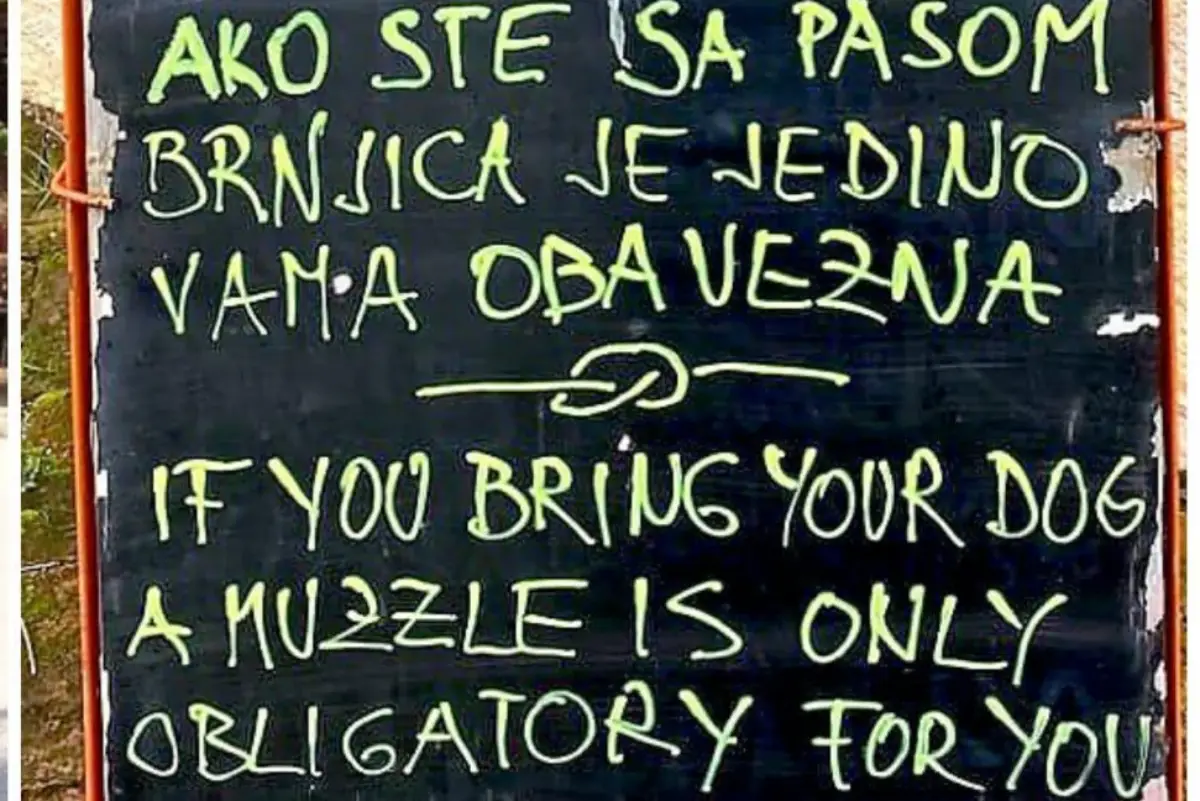 AKO STE SA PASOM
BRNJICA JE JEDINO
VAMA OBAVEZNA
IF YOU BRING YOUR DOG
A MUZZLE IS ONLY
OBLIGATORY FOR YOU